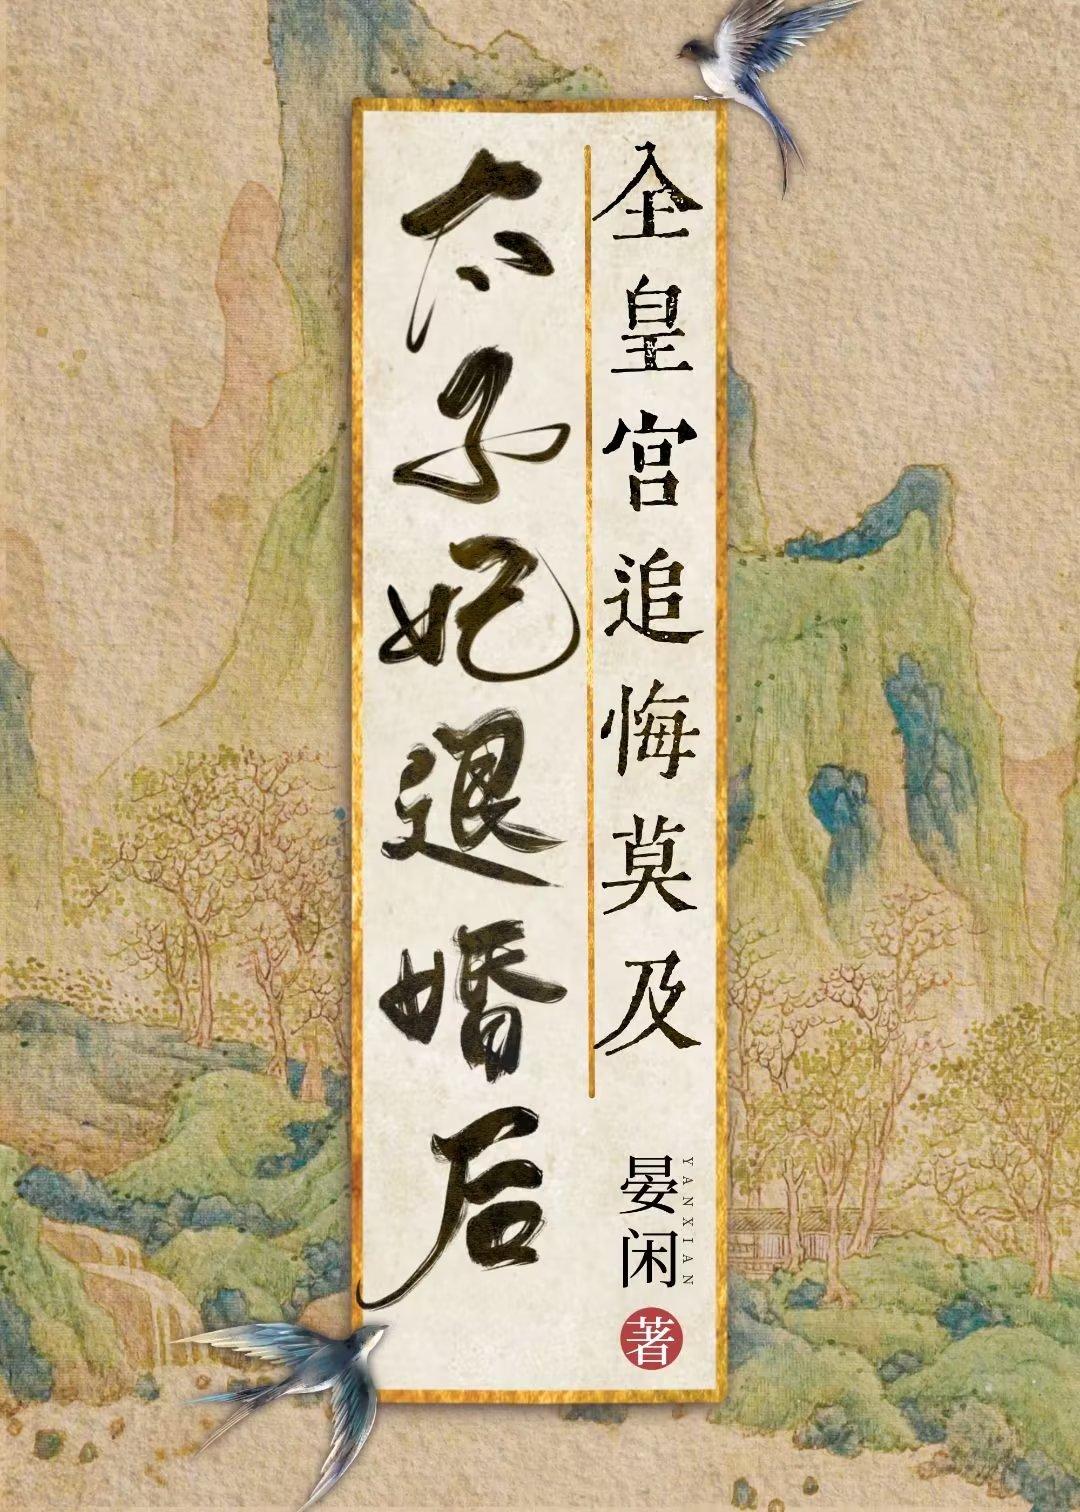 全皇宫追悔莫及
太子妃退婚后
晏闲
YANXIAN
著